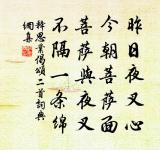 昨日夜叉心
今朝菩萨面
菩萨与夜叉
不隔一条线
释思业偈颂一首词典
网集